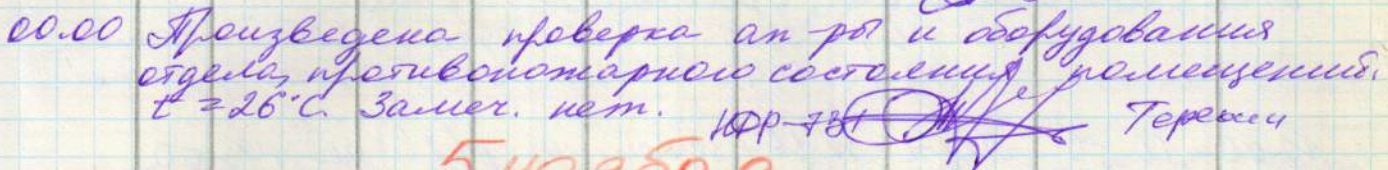 00.00 Произведена проверка ап-ры и оборудования
отдела, противопожарного состояния помещений.
t = 26°C. Замеч. нет. Терешин
5 ноября